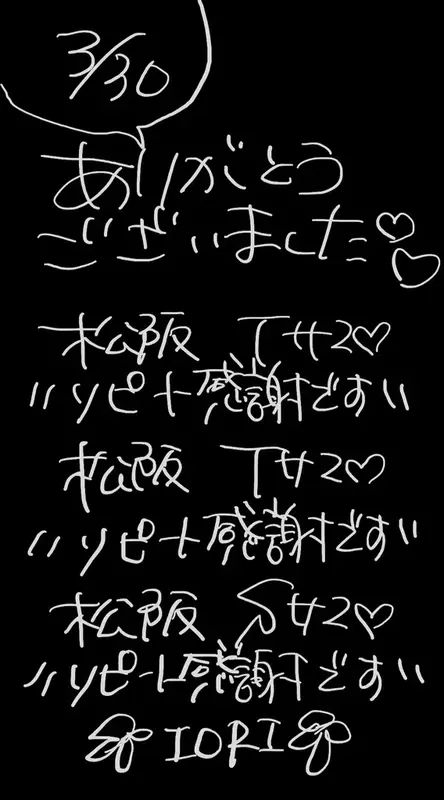 3/30
ありがとう
ございました♡♡
松阪 Tサマ♡
〃リピート感謝です〃
松阪 Tサマ♡
〃リピート感謝です〃
松阪 Sサマ♡
〃リピート感謝です〃
IORI